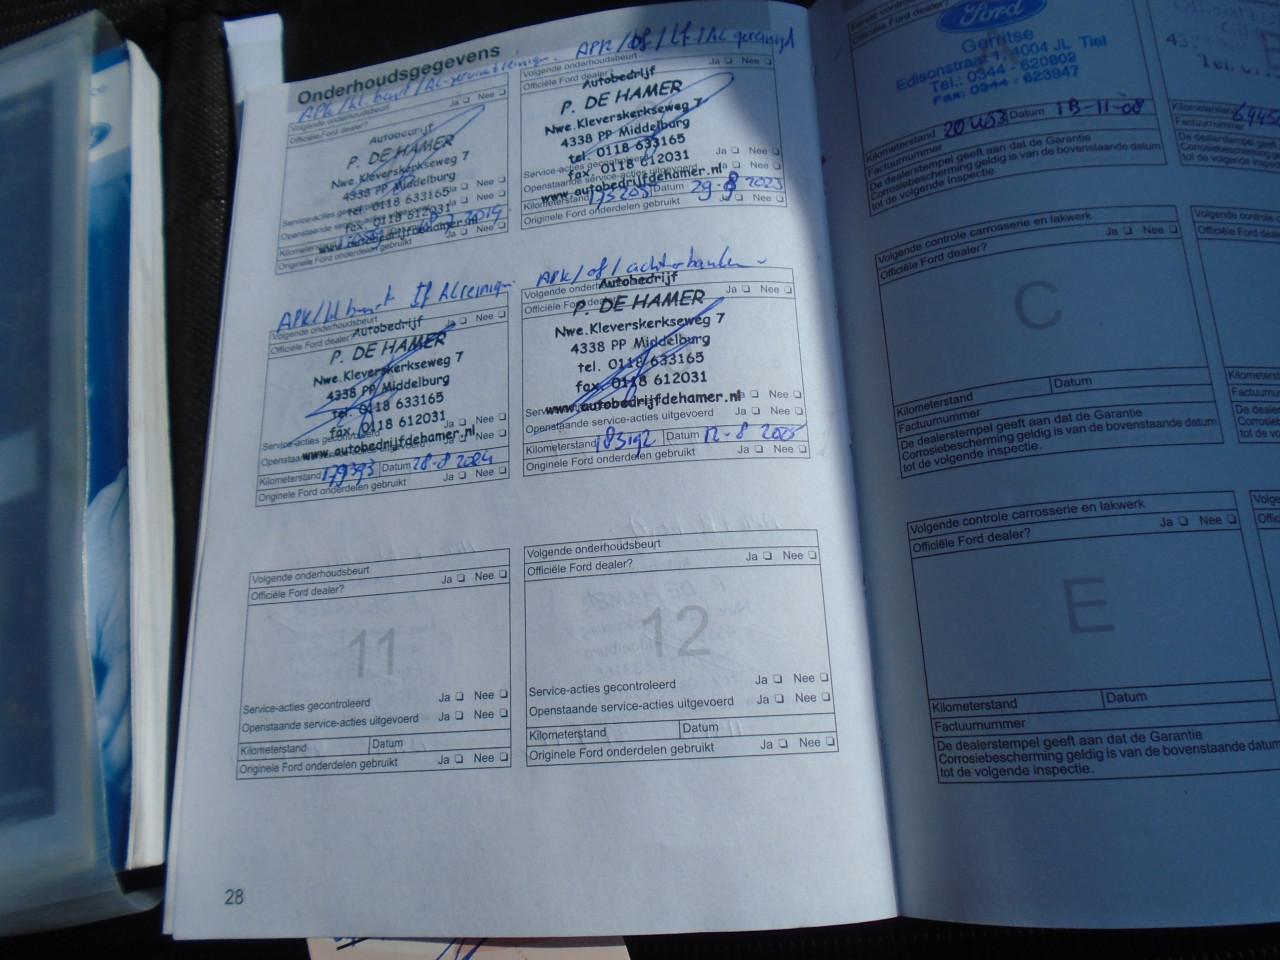 Onderhoudsgegevens
Volgende onderhoudsbeurt
Officiële Ford dealer? Ja Nee
Autobedrijf
P. DE HAMER
Nwe. Kleverskerkseweg 7
4338 PP Middelburg
tel. 0118 633165
fax. 0118 612031
www.autobedrijfdehamer.nl
Service-acties gecontroleerd Ja Nee
Openstaande Ja Nee
Kilometerstand
Originele Ford onderdelen gebruikt Ja Nee
APK/
Volgende onderhoudsbeurt
Officiële Ford dealer? Ja Nee
Autobedrijf
P. DE HAMER
Nwe. Kleverskerkseweg 7
4338 PP Middelburg
tel. 0118 633165
fax. 0118 612031
www.autobedrijfdehamer.nl
Service-acties gecontroleerd Ja Nee
Openstaande service-acties uitgevoerd Ja Nee
Kilometerstand Datum 29-8 2023
Originele Ford onderdelen gebruikt Ja Nee
APK/kl. beurt
Volgende onderhoudsbeurt
Officiële Ford dealer? Ja Nee
Autobedrijf
P. DE HAMER
Nwe. Kleverskerkseweg 7
4338 PP Middelburg
tel. 0118 633165
fax. 0118 612031
www.autobedrijfdehamer.nl
Service-acties gecontroleerd Ja Nee
Kilometerstand 179393 Datum 28-8 2024
Originele Ford onderdelen gebruikt Ja Nee
APK/of/achterbanden
Volgende
Officiële Ford dealer? Ja Nee
Autobedrijf
P. DE HAMER
Nwe. Kleverskerkseweg 7
4338 PP Middelburg
tel. 0118 633165
fax. 0118 612031
www.autobedrijfdehamer.nl
Ja Nee
Openstaande service-acties uitgevoerd Ja Nee
Kilometerstand 183192 Datum 12-8 2025
Originele Ford onderdelen gebruikt Ja Nee
Volgende onderhoudsbeurt
Officiële Ford dealer? Ja Nee
11
Service-acties gecontroleerd Ja Nee
Openstaande service-acties uitgevoerd Ja Nee
Kilometerstand Datum
Originele Ford onderdelen gebruikt Ja Nee
Volgende onderhoudsbeurt
Officiële Ford dealer? Ja Nee
12
Service-acties gecontroleerd Ja Nee
Openstaande service-acties uitgevoerd Ja Nee
Kilometerstand Datum
Originele Ford onderdelen gebruikt Ja Nee
28
Ford
Gerritse
Edisonstraat 1, 4004 JL Tiel
Tel.: 0344 - 620802
Fax: 0344 - 623947
Kilometerstand Datum 13-11-08
Factuurnummer
De dealerstempel geeft aan dat de Garantie
Corrosiebescherming geldig is van de bovenstaande datum
tot de volgende inspectie.
Volgende controle carrosserie en lakwerk
Officiële Ford dealer? Ja Nee
C
Kilometerstand Datum
Factuurnummer
De dealerstempel geeft aan dat de Garantie
Corrosiebescherming geldig is van de bovenstaande datum
tot de volgende inspectie.
Volgende controle carrosserie en lakwerk
Officiële Ford dealer? Ja Nee
E
Kilometerstand Datum
Factuurnummer
De dealerstempel geeft aan dat de Garantie
Corrosiebescherming geldig is van de bovenstaande datum
tot de volgende inspectie.